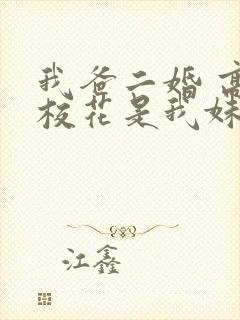 我爸二婚 高
校花是我妹
江鑫